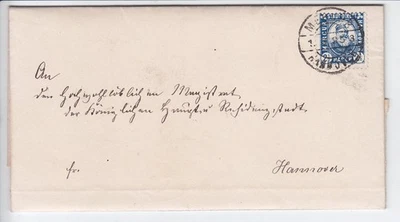 An
den Hochwohllöblichen Magistrat
der Königlichen Haupt u. Residenzstadt
fr.
Hannover